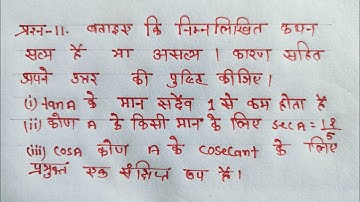 प्रश्न-11. बताइए कि निम्नलिखित कथन
सत्य हैं या असत्य । कारण सहित
अपने उत्तर की पुष्टि कीजिए।
(i) tanA के मान सदैव 1 से कम होता है
(ii) कोण A के किसी मान के लिए secA = 12/5
(iii) cosA कोण A के cosecant के लिए
प्रयुक्त एक संक्षिप्त रूप है।